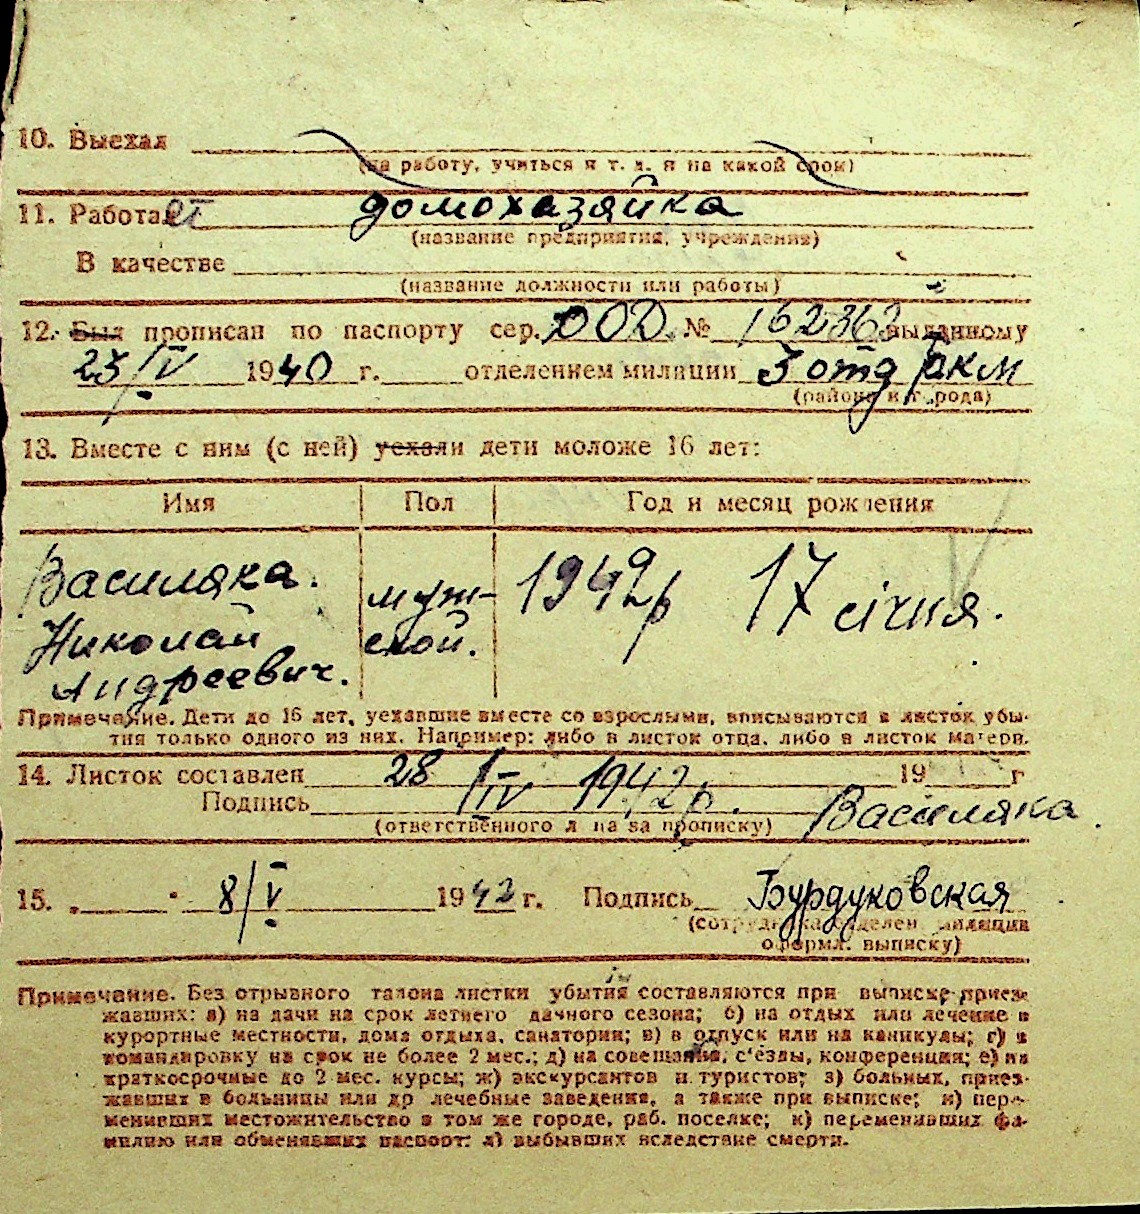 10. Выехал
(на работу, учиться и т. д. и на какой срок)
11. Работает домохазяйка
(название предприятия, учреждения)
В качестве
(название должности или работы)
12. Был прописан по паспорту сер. № 162362 выданному
23/IV 1940 г. отделением милиции 3 отд РКМ
(района и города)
13. Вместе с ним (с ней) уехали дети моложе 16 лет:
Имя Пол Год и месяц рождения
Василяка. муж- 1942р 17 січня.
Николай ской.
Андреевич.
Примечание. Дети до 16 лет, уехавшие вместе со взрослыми, вписываются в листок убы-
тия только одного из них. Например: либо в листок отца, либо в листок матери.
14. Листок составлен 28/IV 1942р. 19 г
Подпись Василяка.
(ответственного лица за прописку)
15. " " 8/V 1942 г. Подпись Бурдуковская
(сотрудника отделен. милиции
оформл. выписку)
Примечание. Без отрывного талона листки убытия составляются при выписке приез-
жавших: а) на дачи на срок летнего дачного сезона; б) на отдых или лечение в
курортные местности, дома отдыха, санатории; в) в отпуск или на каникулы; г) в
командировку на срок не более 2 мес.; д) на совещания, с'езды, конференции; е) на
краткосрочные до 2 мес. курсы; ж) экскурсантов и туристов; з) больных, приез-
жавших в больницы или др лечебные заведения, а также при выписке; и) пере-
менивших местожительство в том же городе, раб. поселке; к) переменивших фа-
милию или обменявших паспорт: л) выбывших вследствие смерти.